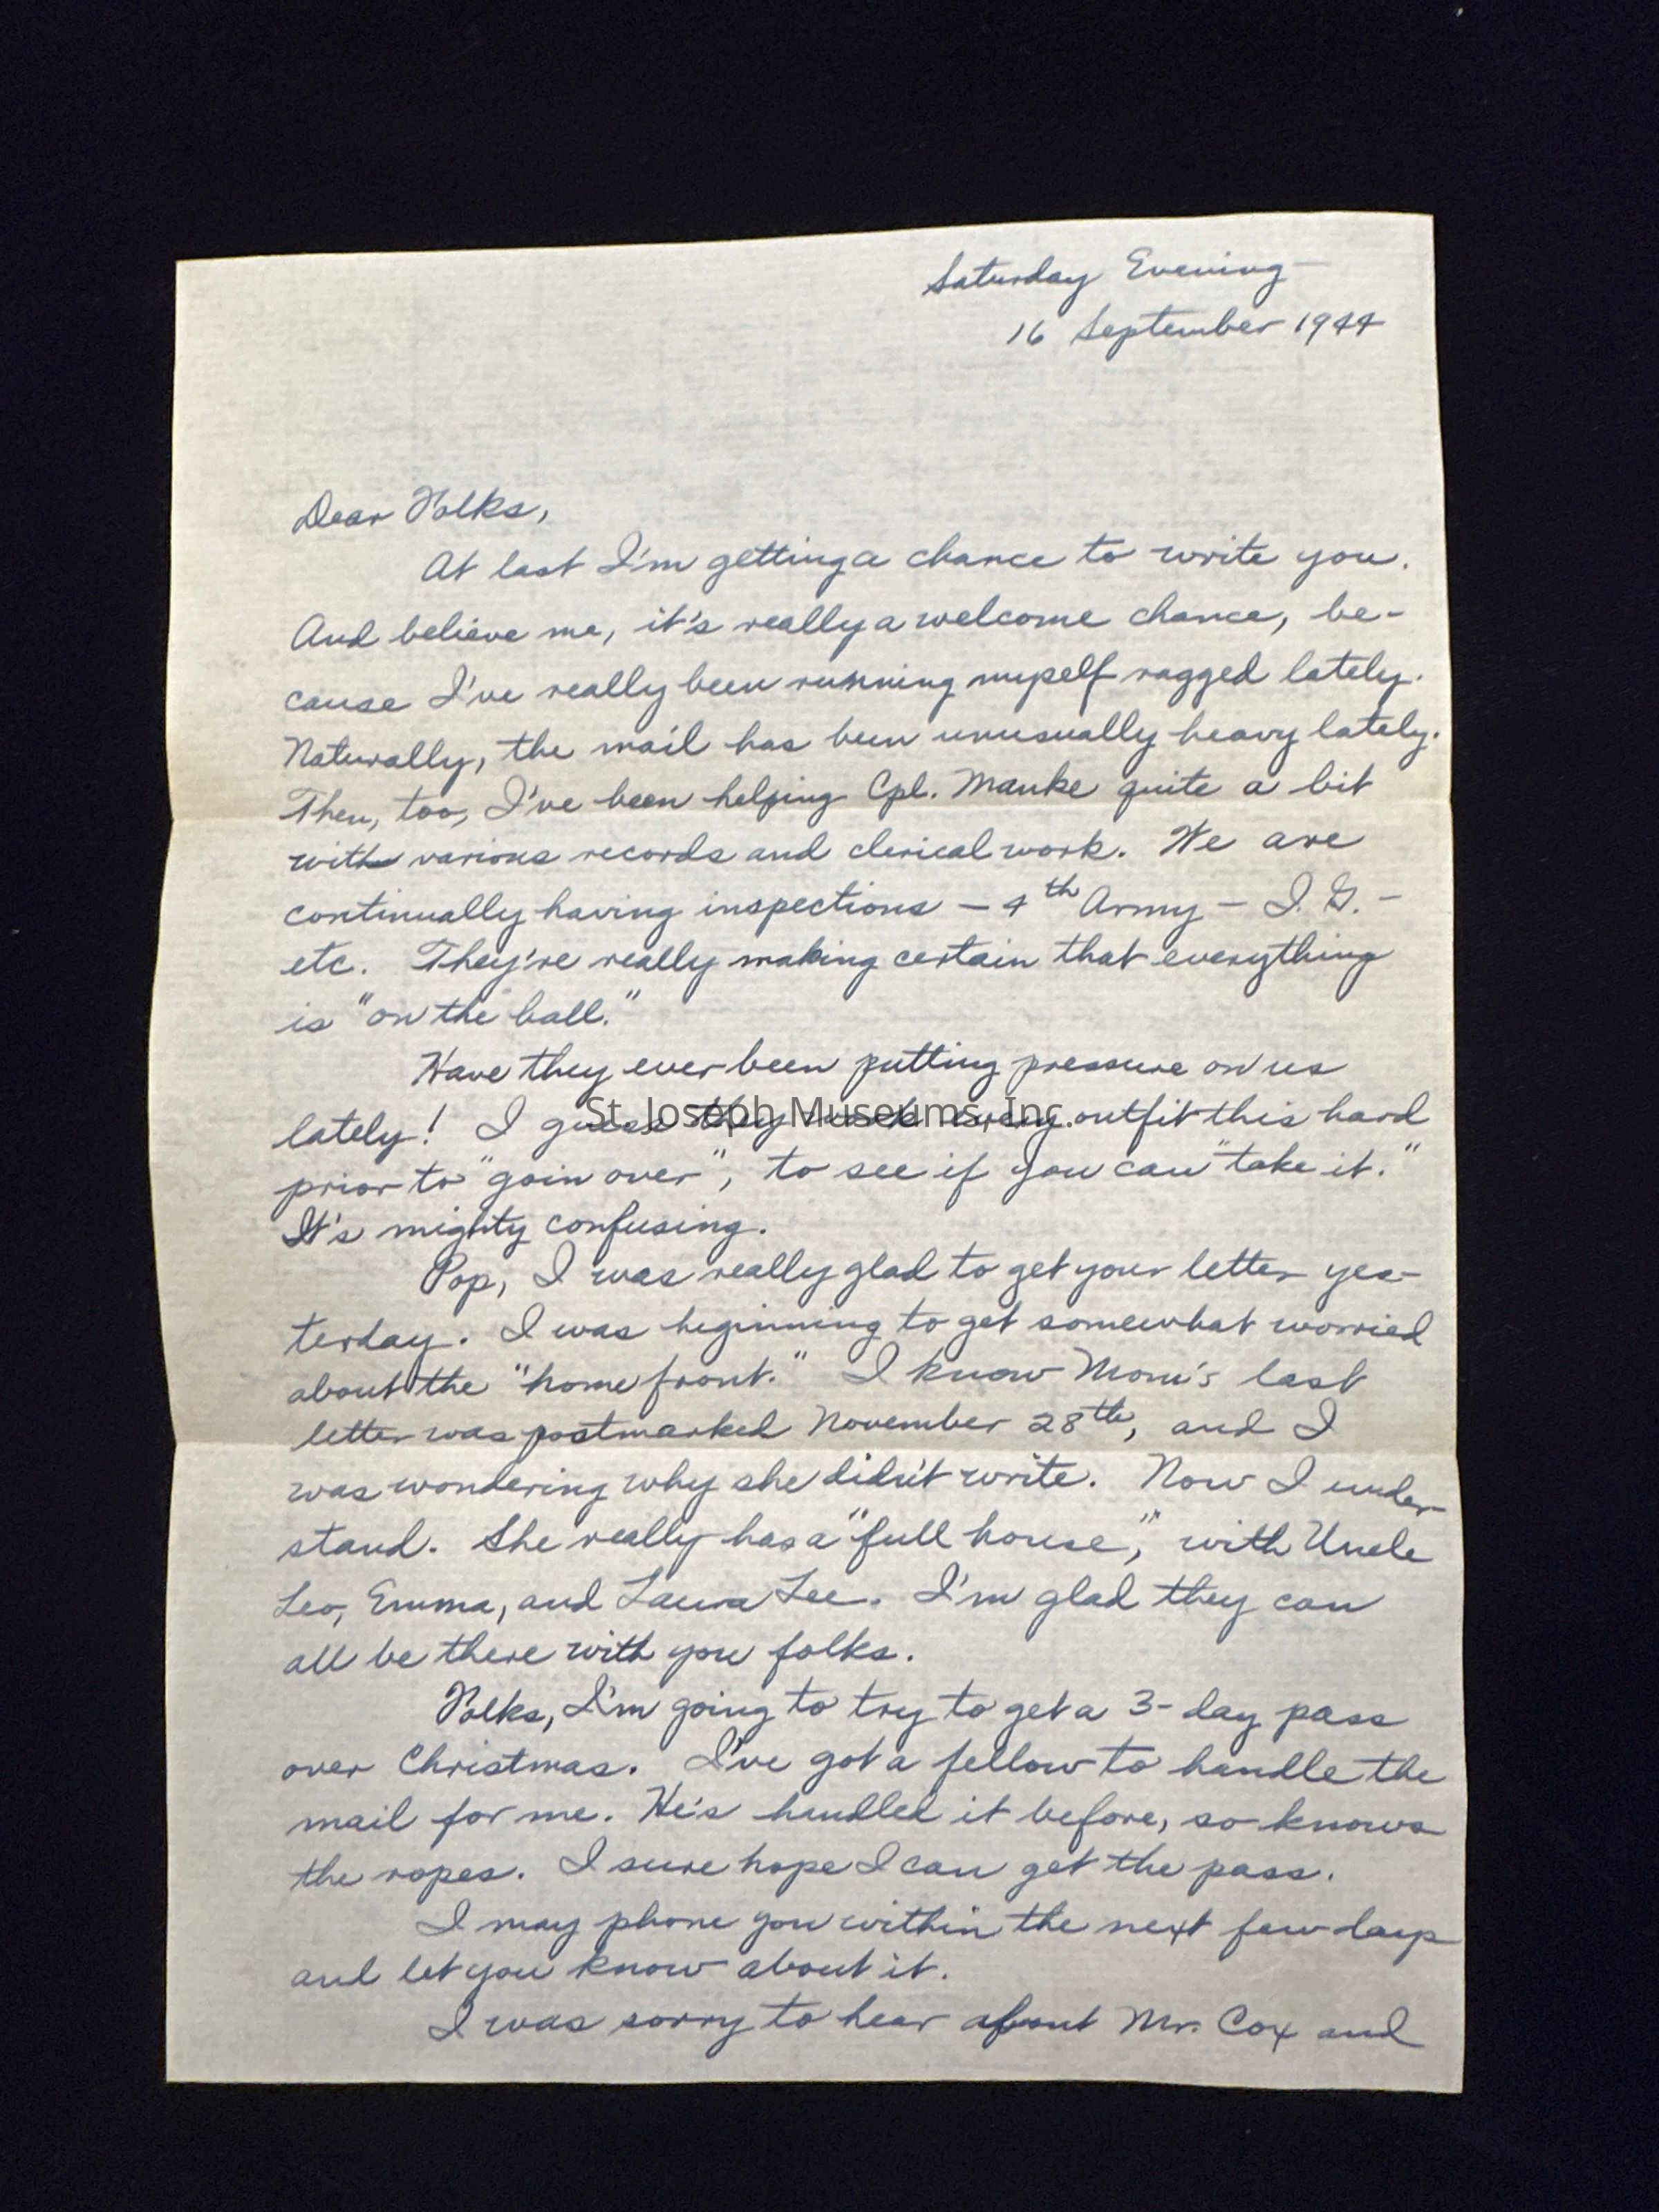 Saturday Evening —
16 September 1944
Dear Folks,
At last I'm getting a chance to write you.
And believe me, it's really a welcome chance, be-
cause I've really been running myself ragged lately.
Naturally, the mail has been unusually heavy lately.
Then, too, I've been helping Cpl. Manke quite a bit
with various records and clerical work. We are
continually having inspections — 4th Army — I. G. —
etc. They're really making certain that everything
is "on the ball."
Have they ever been putting pressure on us
lately! I guess they every outfit this hard
St. Joseph Museums, Inc.
prior to "goin over", to see if you can "take it."
It's mighty confusing.
Pop, I was really glad to get your letter yes-
terday. I was beginning to get somewhat worried
about the "home front." I know Mom's last
letter was postmarked November 28th, and I
was wondering why she didn't write. Now I under-
stand. She really has a "full house", with Uncle
Leo, Emma, and Laura Lee. I'm glad they can
all be there with you folks.
Folks, I'm going to try to get a 3-day pass
over Christmas. I've got a fellow to handle the
mail for me. He's handled it before, so knows
the ropes. I sure hope I can get the pass.
I may phone you within the next few days
and let you know about it.
I was sorry to hear about Mr. Cox and